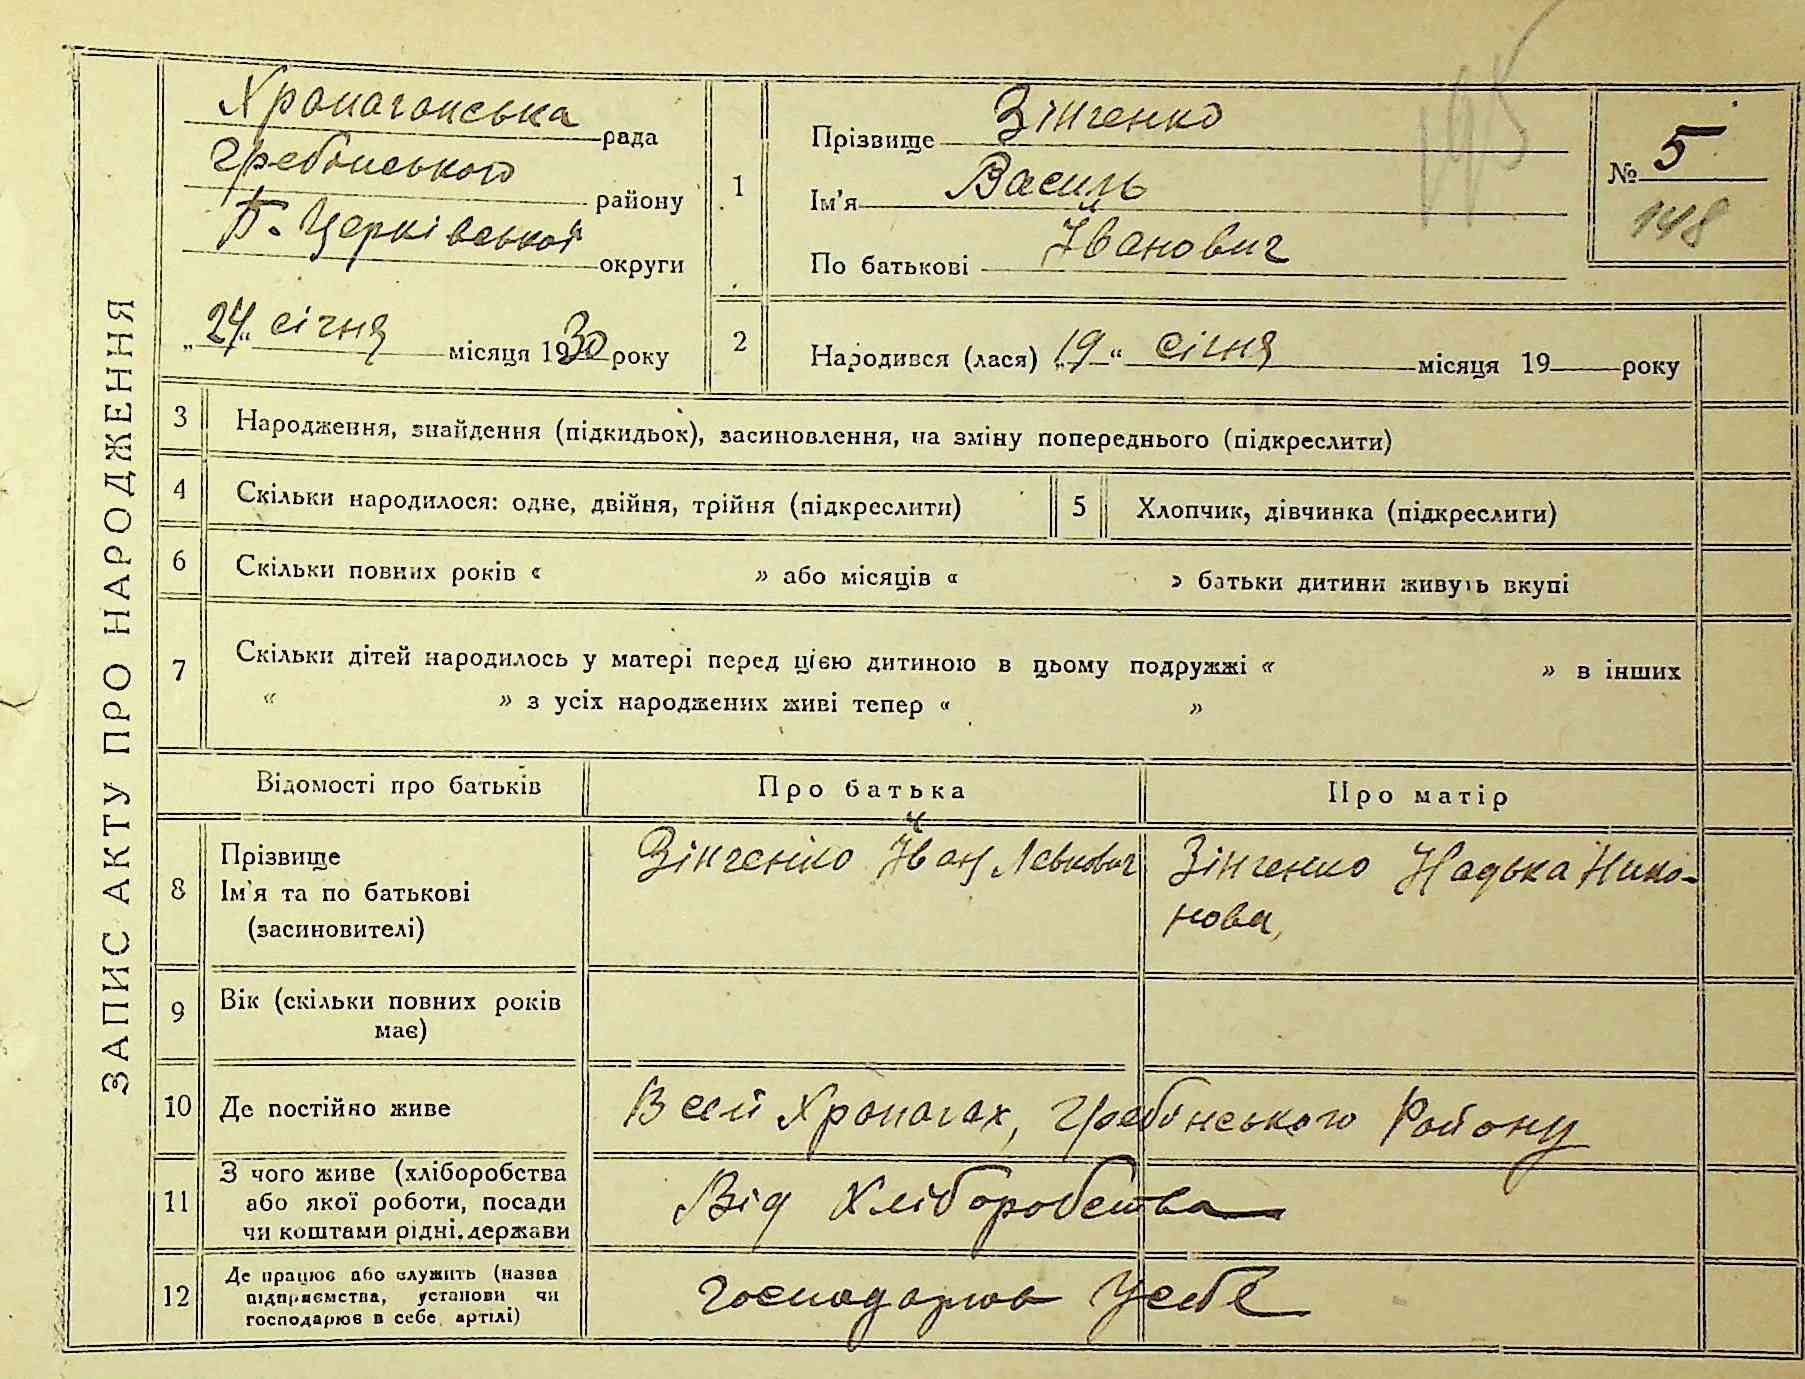 ЗАПИС АКТУ ПРО НАРОДЖЕННЯ
Хропачанська рада
Гребінського району
Б. Церківської округи
„24“ січня місяця 1930 року
1
Прізвище Зінченко
Ім'я Василь
По батькові Іванович
№ 5
148
195
2
Народився (лася) „19“ січня місяця 19 року
3 Народження, знайдення (підкидьок), засиновлення, на зміну попереднього (підкреслити)
4 Скільки народилося: одне, двійня, трійня (підкреслити) 5 Хлопчик, дівчинка (підкреслити)
6 Скільки повних років « » або місяців « » батьки дитини живуть вкупі
7 Скільки дітей народилось у матері перед цією дитиною в цьому подружжі « » в інших
« » з усіх народжених живі тепер « »
Відомості про батьків Про батька Про матір
8 Прізвище
Ім'я та по батькові
(засиновителі)
Зінченко Іван Левкович
Зінченко Надька Нико-
нова,
9 Вік (скільки повних років
має)
10 Де постійно живе В селі Хропачах, Гребінського Району
11 З чого живе (хліборобства
або якої роботи, посади
чи коштами рідні. держави
Від Хліборобства
12 Де працює або служить (назва
підприємства, установи чи
господарює в себе, артілі)
Господарює У себе